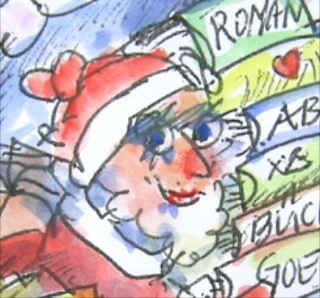 ROMAN
AB
XB
BLACK
GOE